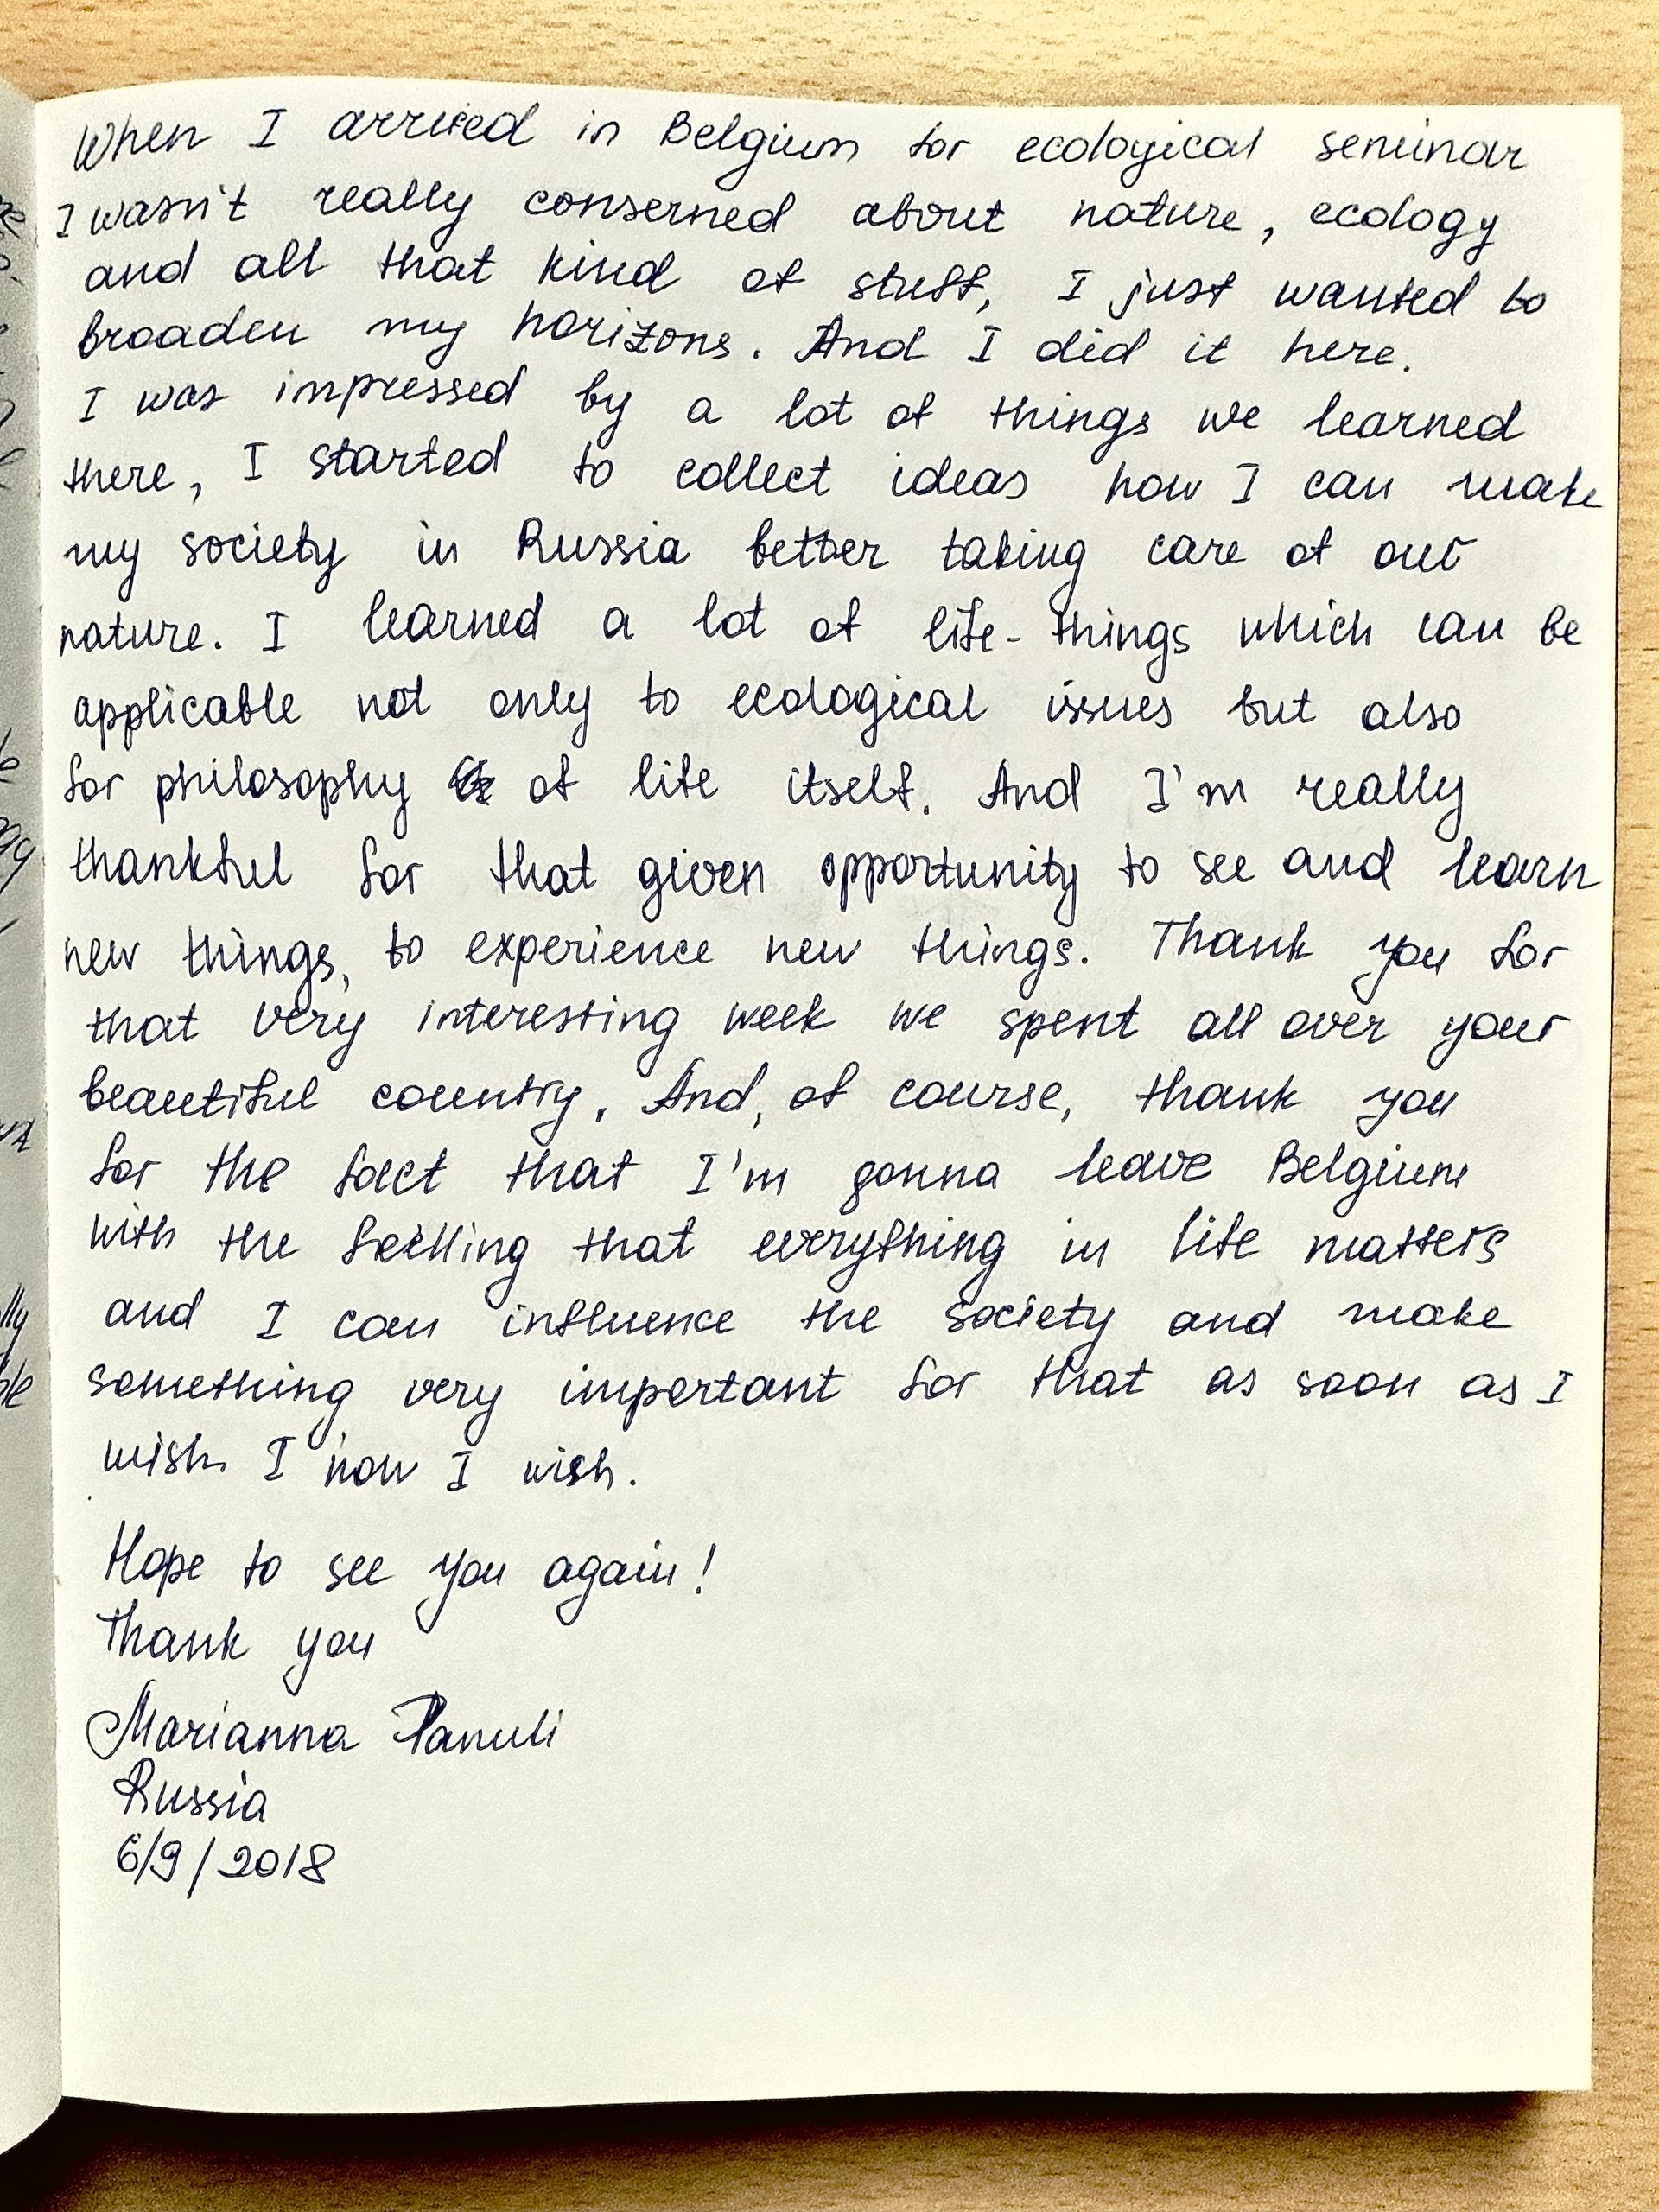 When I arrived in Belgium for ecological seminar
I wasn't really conserned about nature, ecology
and all that kind of stuff, I just wanted to
broaden my horizons. And I did it here.
I was impressed by a lot of things we learned
there, I started to collect ideas how I can make
my society in Russia better taking care of our
nature. I learned a lot of life-things which can be
applicable not only to ecological issues but also
for philosophy of life itself. And I'm really
thankful for that given opportunity to see and learn
new things, to experience new things. Thank you for
that very interesting week we spent all over your
beautiful country. And, of course, thank you
for the fact that I'm gonna leave Belgium
with the feelling that everything in life matters
and I can influence the society and make
something very important for that as soon as I
wish. I now I wish.
Hope to see you again!
Thank you
Marianna Panuli
Russia
6/9/2018